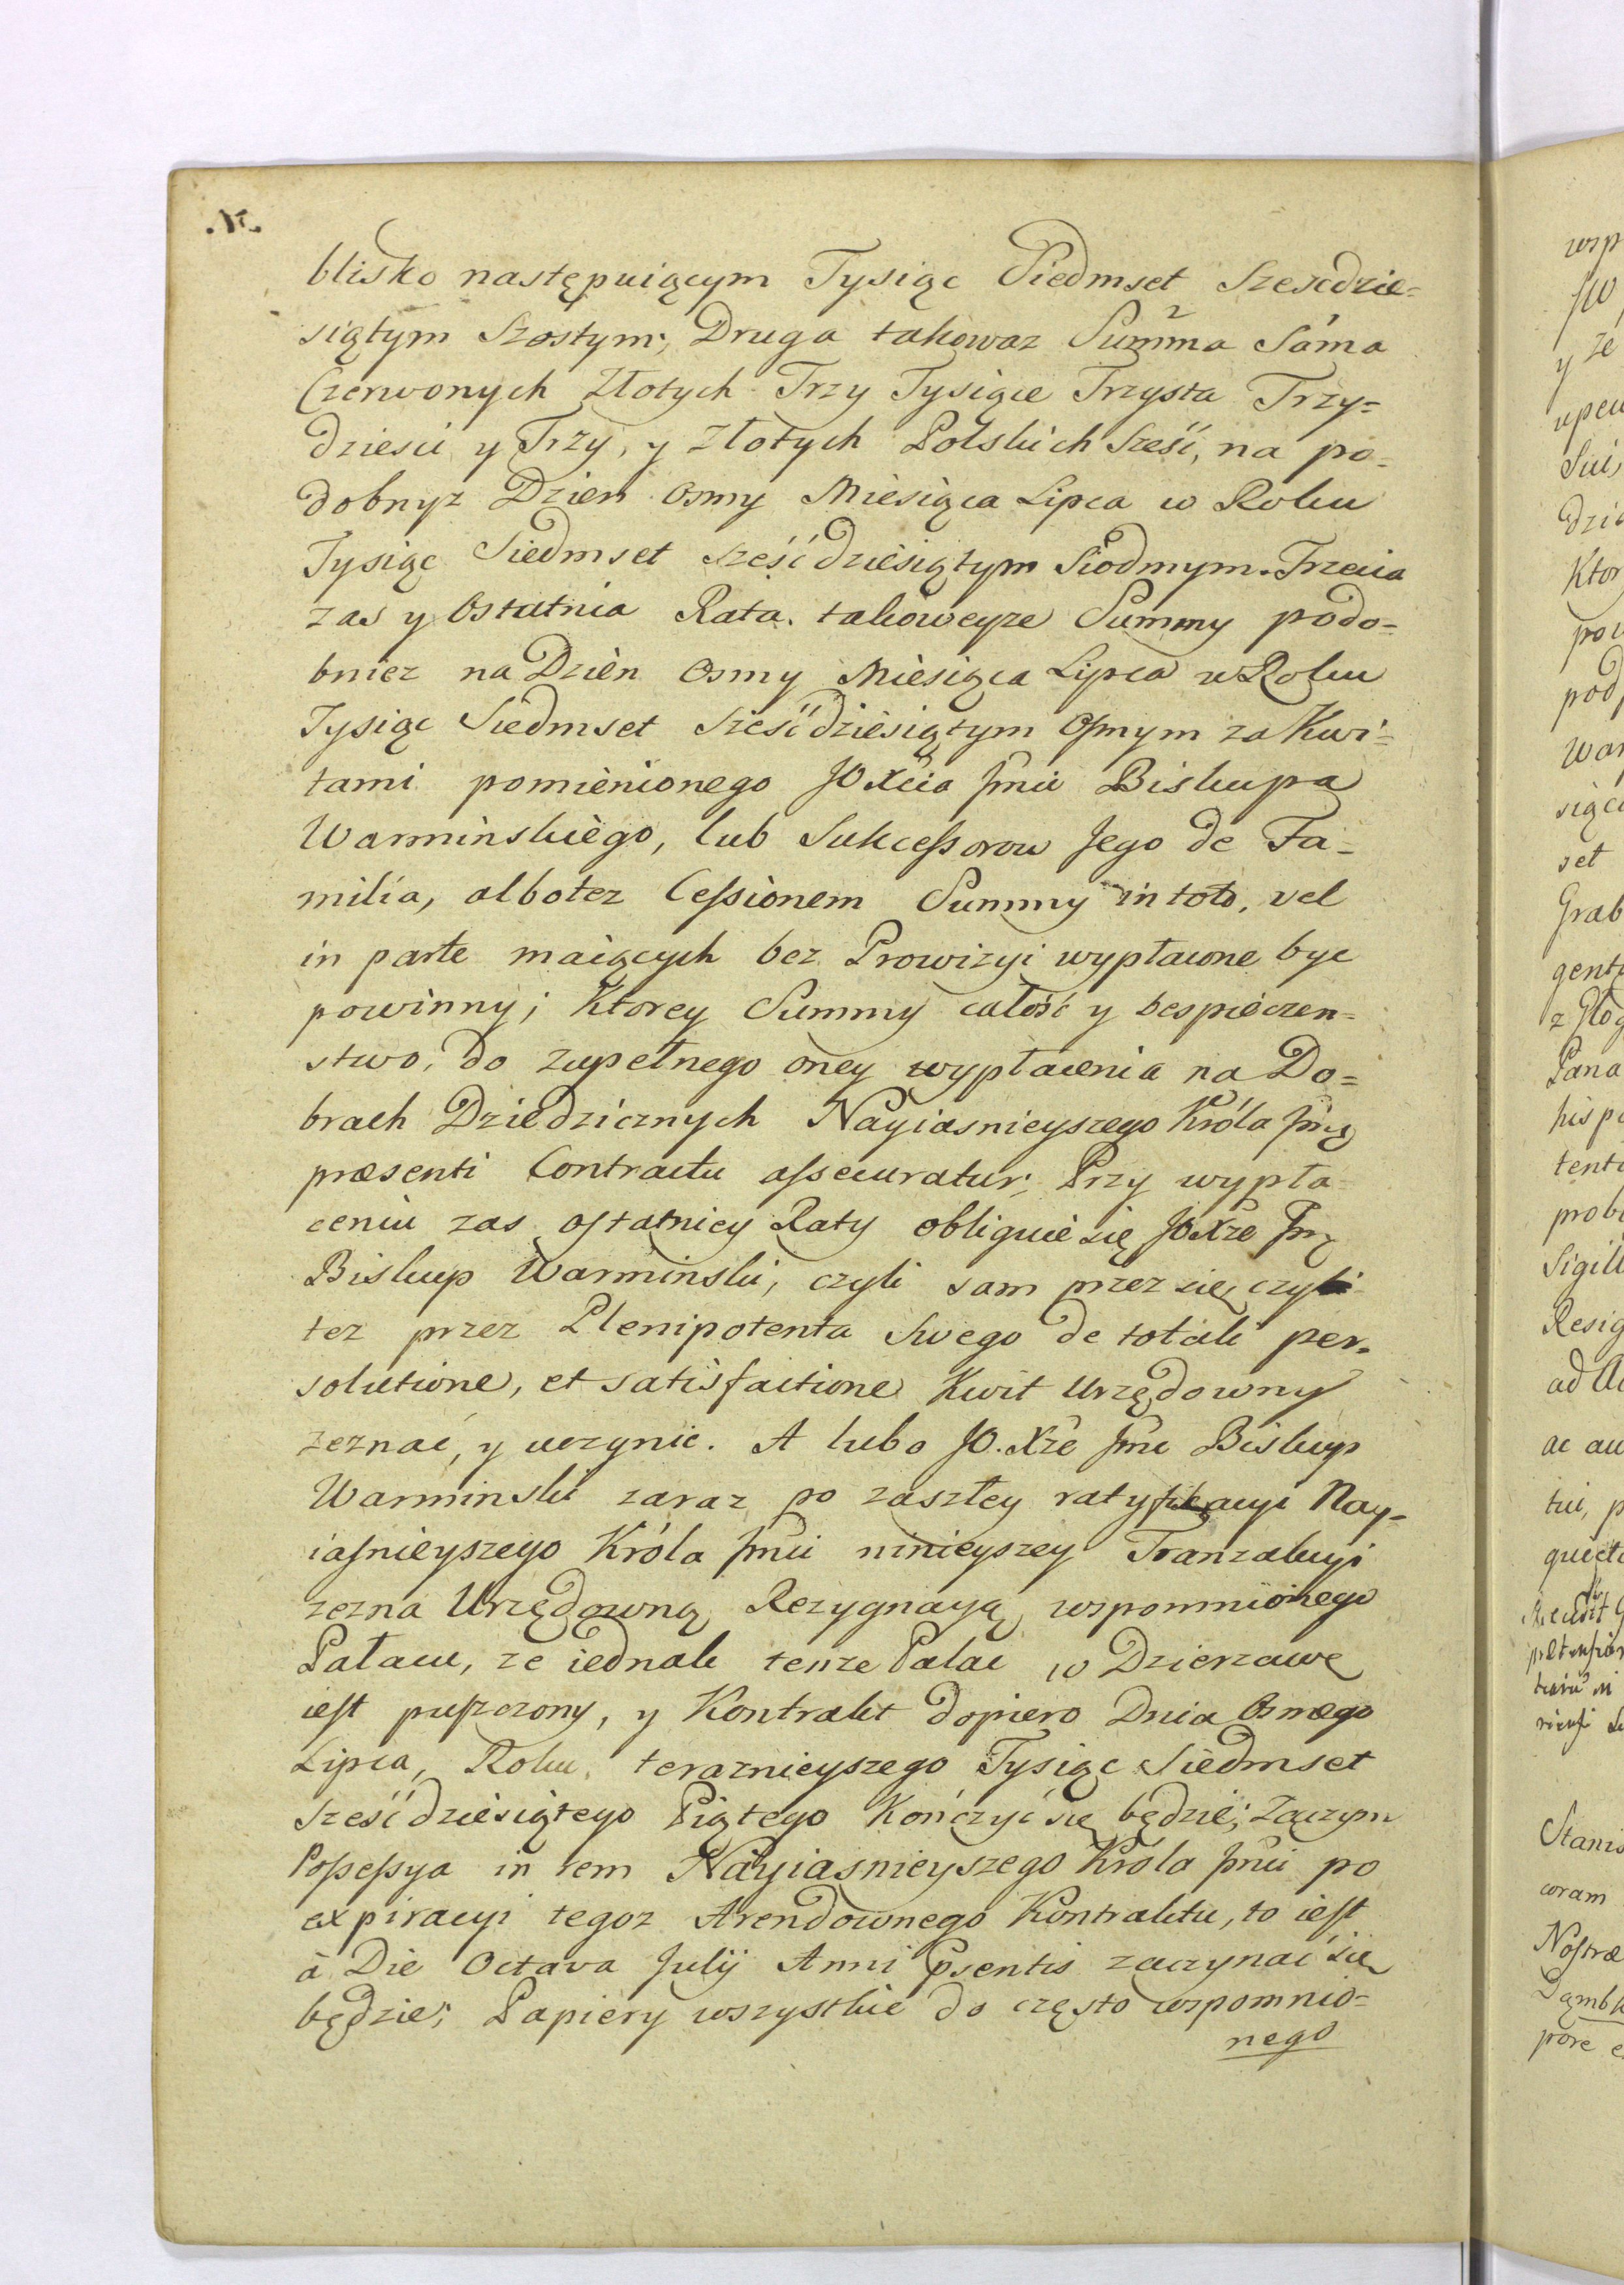 blisko następuiącym Tysiąc Siedmset Szescdzie=
siątym Szostym; Druga takowaz Summa Sama
Czerwonych Złotych Trzy Tysiące Trzysta Trzy=
dziesci y Trzy, y Złotych Polskich Sześć, na po=
dobnyz Dzien Osmy Miesiąca Lipca w Roku
Tysiąc Siedmset sześćdziesiątym Siodmym. Trzecia
zas y Ostatnia Rata takoweyze Summy podo=
bniez na Dzień Osmy Miesiąca Lipca w Roku
Tysiąc Siedmset Sześćdziesiątym Osmym za Kwi=
tami pomienionego JO Xcia Jmci Biskupa
Warminskiego, lub Sukcessorow Jego de Fa=
milia, albotez Cessionem Summy in toto, vel
in parte maiących bez Prowizyi wypłacone byc
powinny; Ktorey Summy całość y bespieczen=
stwo, do zupełnego oney wypłacenia na Do=
brach Dziedzicznych Nayiasnieyszego Króla Jmci
præsenti Contractu assecuratur; Przy wypła=
ceniu zas ostatniey Raty obliguie się JO Xze Jmć
Biskup Warminski, czyli sam przez się, czyli
tez przez Plenipotenta Swego de totali per=
solutione, et satisfactione Kwit Urzędowny
zeznać, y uczynic. A lubo JO. Xże Jmc Biskup
Warminski zaraz po zaszłey ratyfikacyi Nay=
iasnieyszego Króla Jmci ninieyszey Tranzakcyi
zezna Urzędowną Rezygnacyą wspomnionego
Pałacu, ze iednak tenze Palac w Dzierzawę
iest puszczony, y Kontrakt dopiero Dnia Osmego
Lipca, Roku teraznieyszego Tysiąc Siedmset
Sześćdziesiątego Piątego Kończyć się będzie; Zaczym
Possessya in rem Nayiasnieyszego Króla Jmci po
expiracyi tegoz Arendownego Kontraktu, to iest
à Die Octava Julij Anni Psentis zaczynać się
będzie; Papiery wszystkie do często wspomnio=
nego